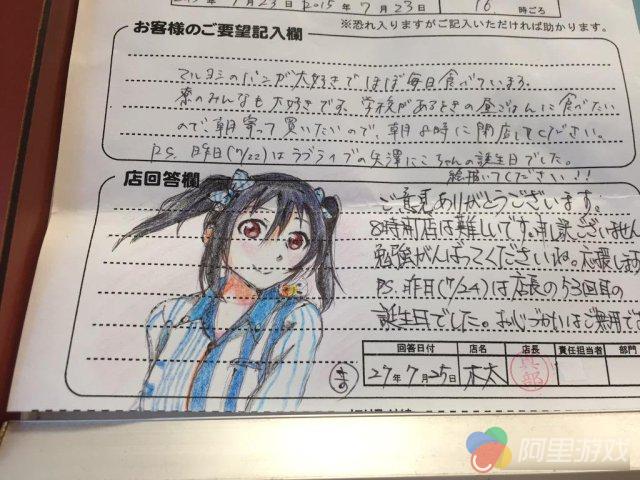 7月23日 2015年 7月23日 16時ごろ
※恐れ入りますがご記入いただければ助かります。
お客様のご要望記入欄
マルヨシのパンが大好きでほぼ毎日食べています。
寮のみんなも大好きです。学校があるときの昼ごはんに食べたい
ので、朝寄って買いたいので、朝8時に開店してください。
P.S. 昨日(7/22)はラブライブの矢澤にこちゃんの誕生日でした。
絵描いてください!!
店回答欄
ご意見ありがとうございます。
8時開店は難しいです。申し訳ございません
勉強がんばってくださいね。応援します
P.S. 昨日(7/24)は店長の53回目の
誕生日でした。お心づかいはご無用で
回答日付 店名 店長 責任担当者 部門
27年7月25日 木太
阿里游戏